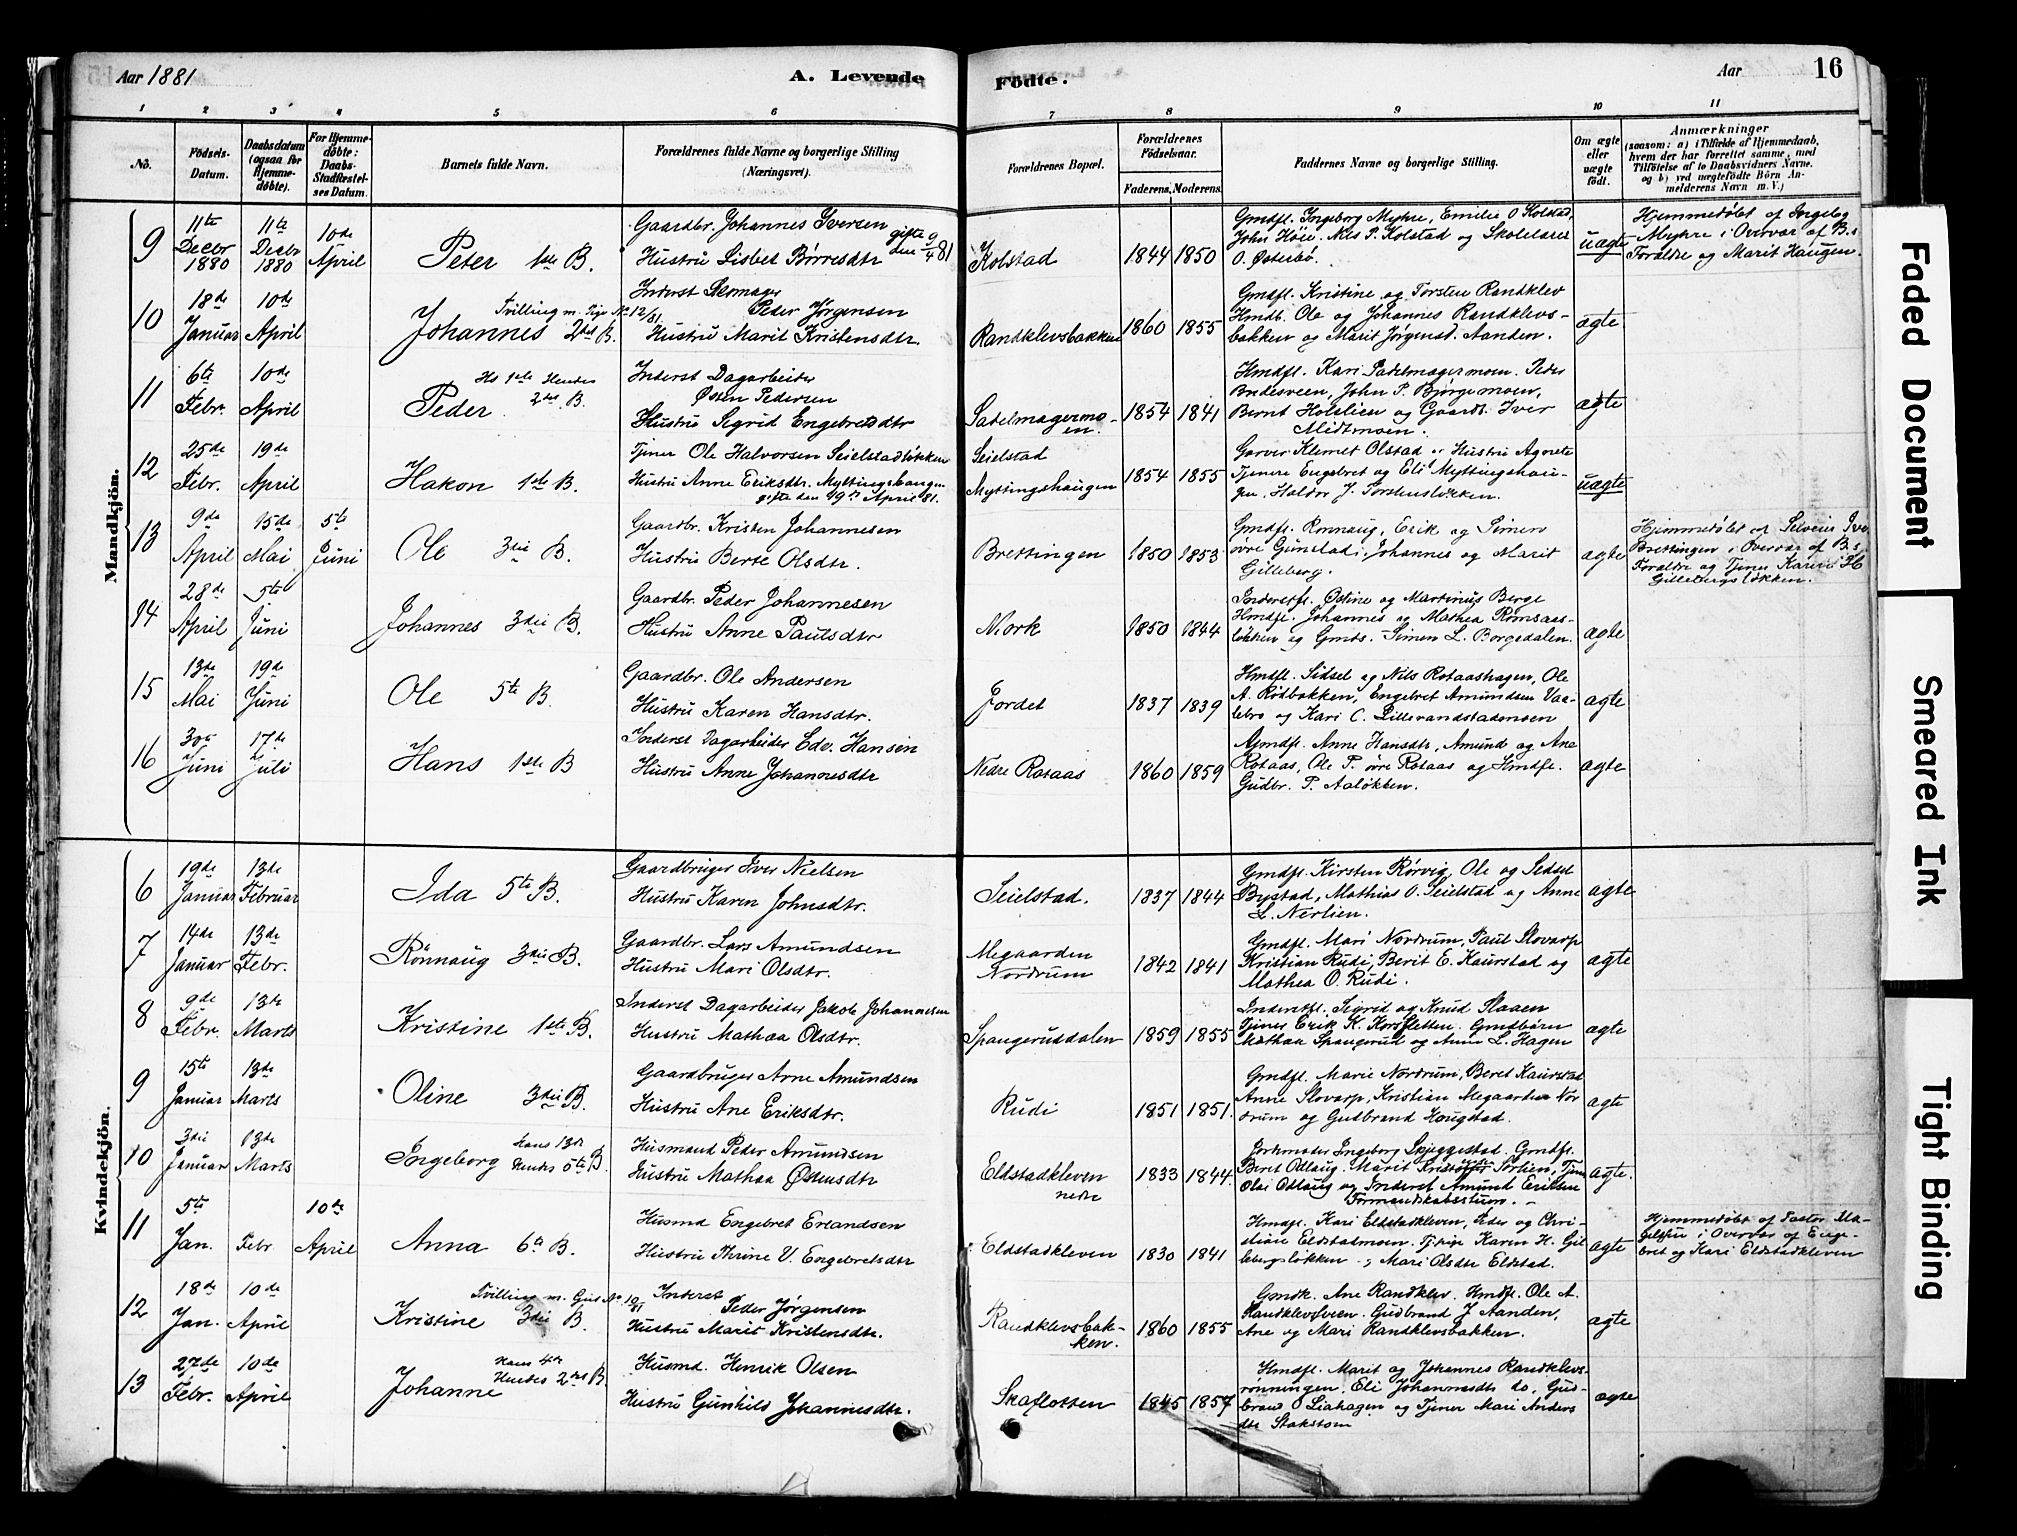 Aar 1881
A. Levende
Fødte.
Aar
16
1 2 3 4 5 6 7 8 9 10 11
No.
Fødsels-
Datum.
Daabsdatum
(ogsaa for
Hjemme-
døbte).
For Hjemme-
døbte:
Daabs-
Stadfæstel-
ses Datum.
Barnets fulde Navn.
Forældrenes fulde Navne og borgerlige Stilling
(Næringsvei).
Forældrenes Bopæl.
Forældrenes
Fødselsaar.
Faderens. Moderens.
Faddernes Navne og borgerlige Stilling.
Om ægte
eller
uægte
født.
Anmærkninger
(saasom: a) i Tilfælde af Hjemmedaab,
hvem der har forrettet samme, med
Tilføielse af to Daabsvidners Navne.
og b) ved uægtefødte Børn An-
melderens Navn m. V.)
Mandkjøn.
9
11te
Decbr
1880
11te
Decbr
1880
10de
April
Peter 1ste B.
Gaardbr. Johannes Iversen
Hustru Lisbet Børresdtr
gifte den 9/4 81
Kolstad
1844 1850
Gmdfl. Ingeborg Myhre, Emilie O Kolstad,
John Høie. Nils P. Kolstad og Skolelærer
O. Østerbø.
uægte
Hjemmedøbt af Ingebg
Myhre i Overvær af B.s
Forældre og Marit Haugen.
10
18de
Januar
10de
April
Tvilling m. Pige No 12/81.
Johannes 2det B.
Inderst Skomager
Peder Jørgensen
Hustru Marit Kristensdtr.
Randklevsbakken
1860 1855
Gmdfl. Kristine og Torsten Randklev
Hmdb. Ole og Johannes Randklevs-
bakken og Marit Jørgensd. Aanden.
ægte
11
6te
Febr.
10de
April
Hs 1ste Hendes
Peder 2det B.
Inderst Dagarbeider
Østen Pedersen
Hustru Sigrid Engebretsdtr
Sadelmagermo-
en.
1854 1841
Hmdfl. Kari Sadelmagermoen. Peder
Bredesveen, John P. Bjørgemoen,
Bernt Holslien og Gaards. Iver
Midtmoen.
ægte
12
25de
Febr.
19de
April
Hakon 1ste B.
Tjener Ole Halvorsen Seielstadløkken
Hustru Anne Eriksdtr. Myttingshaugen
gifte den 19de April 81.
Seielstad
Myttingshaugen
1854 1855
Garver Klemet Olstad og Hustru Agnete
Tjenere Engebret og Eli Myttingshau-
gen, Haldor J. Torstensløkken.
uægte
13
9de
April
15de
Mai
5te
Juni
Ole 3die B.
Gaardbr. Kristen Johannesen
Hustru Berte Olsdtr.
Brettingen
1850 1853
Gmdfl. Rønnaug, Erik og Simen
øvre Gunstad, Johannes og Marit
Gilleberg.
ægte
Brettingen i Overvær af B.s
Forældre og Tjener Karen H
Gillebergsløkken.
14
28de
April
5te
Juni
Johannes 3die B.
Gaardbr. Peder Johannesen
Hustru Anne Paulsdtr
Mork
1850 1844
Inderstfl. Østine og Martinus Berge
Hmdfl. Johannes og Mathea Romsaas-
løkken og Gmds. Simen L. Borgedalen.
ægte
15
13de
Mai
19de
Juni
Ole 5te B.
Gaardbr. Ole Andersen
Hustru Karen Hansdtr.
Jordet
1837 1839
Hmdfl. Sidsel og Nils Rotaashagen, Ole
A. Rødbakken, Engebret Amundsen Vaa-
lebro og Kari C. Lillevandstadensen
ægte
16
Juni
17de
Juli
Hans 1ste B
Inderst Dagarbeider Edv. Hansen
Hustru Anne Johannesdtr
Nedre Rotaas
1860 1859
Gmdfl. Anne Hansdtr, Amund og Ane
Rotaas, Ole P. øvre Rotaas og Hmdfl.
Gudbr. P. Aaløkken.
ægte
Kvindekjøn.
6
19de
Januar
13de
Februar
Ida 5te B.
Gaardbruger Iver Nielsen
Hustru Karen Johnsdtr.
Seielstad.
1837 1844
Gmdfl. Kirsten Rørvig, Ole og Sidsel
Bystad, Mathias O. Seielstad og Anne
L. Nerlien.
ægte
7
14de
Januar
13de
Febr.
Rønnaug 3die B.
Gaardbr. Lars Amundsen
Hustru Mari Olsdtr.
Megaarden
Nordrum
1842 1841
Gmdfl. Mari Nordrum, Paul Slovarp
Kristian Rudi, Berit E. Kaurstad og
Mathea O. Rudi.
ægte
8
9de
Febr.
13de
Marts
Kristine 1ste B.
Inderst Dagarbeider Jakob Johannesen
Hustru Mathea Olsdtr.
Spangeruddalen
1859 1855
Inderstfl. Sigrid og Knud Slaaen
Tjener Erik K. Korsfletten. Gmdbørn
Mathea Spangerud og Anne L. Hagen
ægte
9
15te
Januar
13de
Marts
Oline 3die B.
Gaardbruger Arne Amundsen
Hustru Ane Eriksdtr.
Rudi
1851 1851.
Gmdfl. Marie Nordrum, Beret Kaurstad
Anne Slovarp, Kristian Megaarden Nor
drum og Gudbrand Hougstad.
ægte
10
3die
Januar
13de
Marts
Ingeborg
Hans 13de
Hendes 5te B.
Husmand Peder Amundsen
Hustru Mathea Østensdtr
Eldstadkleven
nedre
1833 1844.
Jordmoder Ingeborg Skjeggestad. Gmdfl.
Beret Odlaug. Marit Kristoffer Sørlien, Tjen
Olai Odlaug og Inderst Amund Eriksen
Formandskabsstuen.
ægte.
11
5te
Jan.
Febr.
10de
April
Anna 6te B.
Husmd Engebret Erlandsen
Hustru Thrine V. Engebretsdtr
Eldstadkleven
1830 1841
Hmdfl. Kari Eldstadkleven, Peder og Chri-
stian Eldstadmoen. Tj. pige Karen H. Gil
lebergsløkken og Mari Olsdtr Eldstad.
ægte
Hjemmedøbt af Pastor Ma-
i Overvær af Enge-
bret og Kari Eldstadkleven
12
18de
Jan.
10de
April
Tvilling m. Gut No 10/81
Kristine 3die B.
Inderst
Peder Jørgensen
Hustru Marit Kristensdtr.
Randklevsbak-
ken.
1860 1855
Gmdk. Ane Randklev. Hmdfl. Ole A.
Randklevsveen. Gudbrand J Aanden,
Ane og Mari Randklevsbakken.
ægte
13
27de
Febr.
10de
April
Johanne
Hans 4de
Hendes 2det B.
Husmd. Henrik Olsen
Hustru Gunhild Johannesdtr.
Skaflotten
1845 1857
Hmdfl. Marit og Johannes Randklevs-
rønningen. Eli Johannesdtr do, Gud-
brand O Liahagen og Tjener Mari Anders
dtr Stokstom
ægte
Faded Document
Smeared Ink
Tight Binding